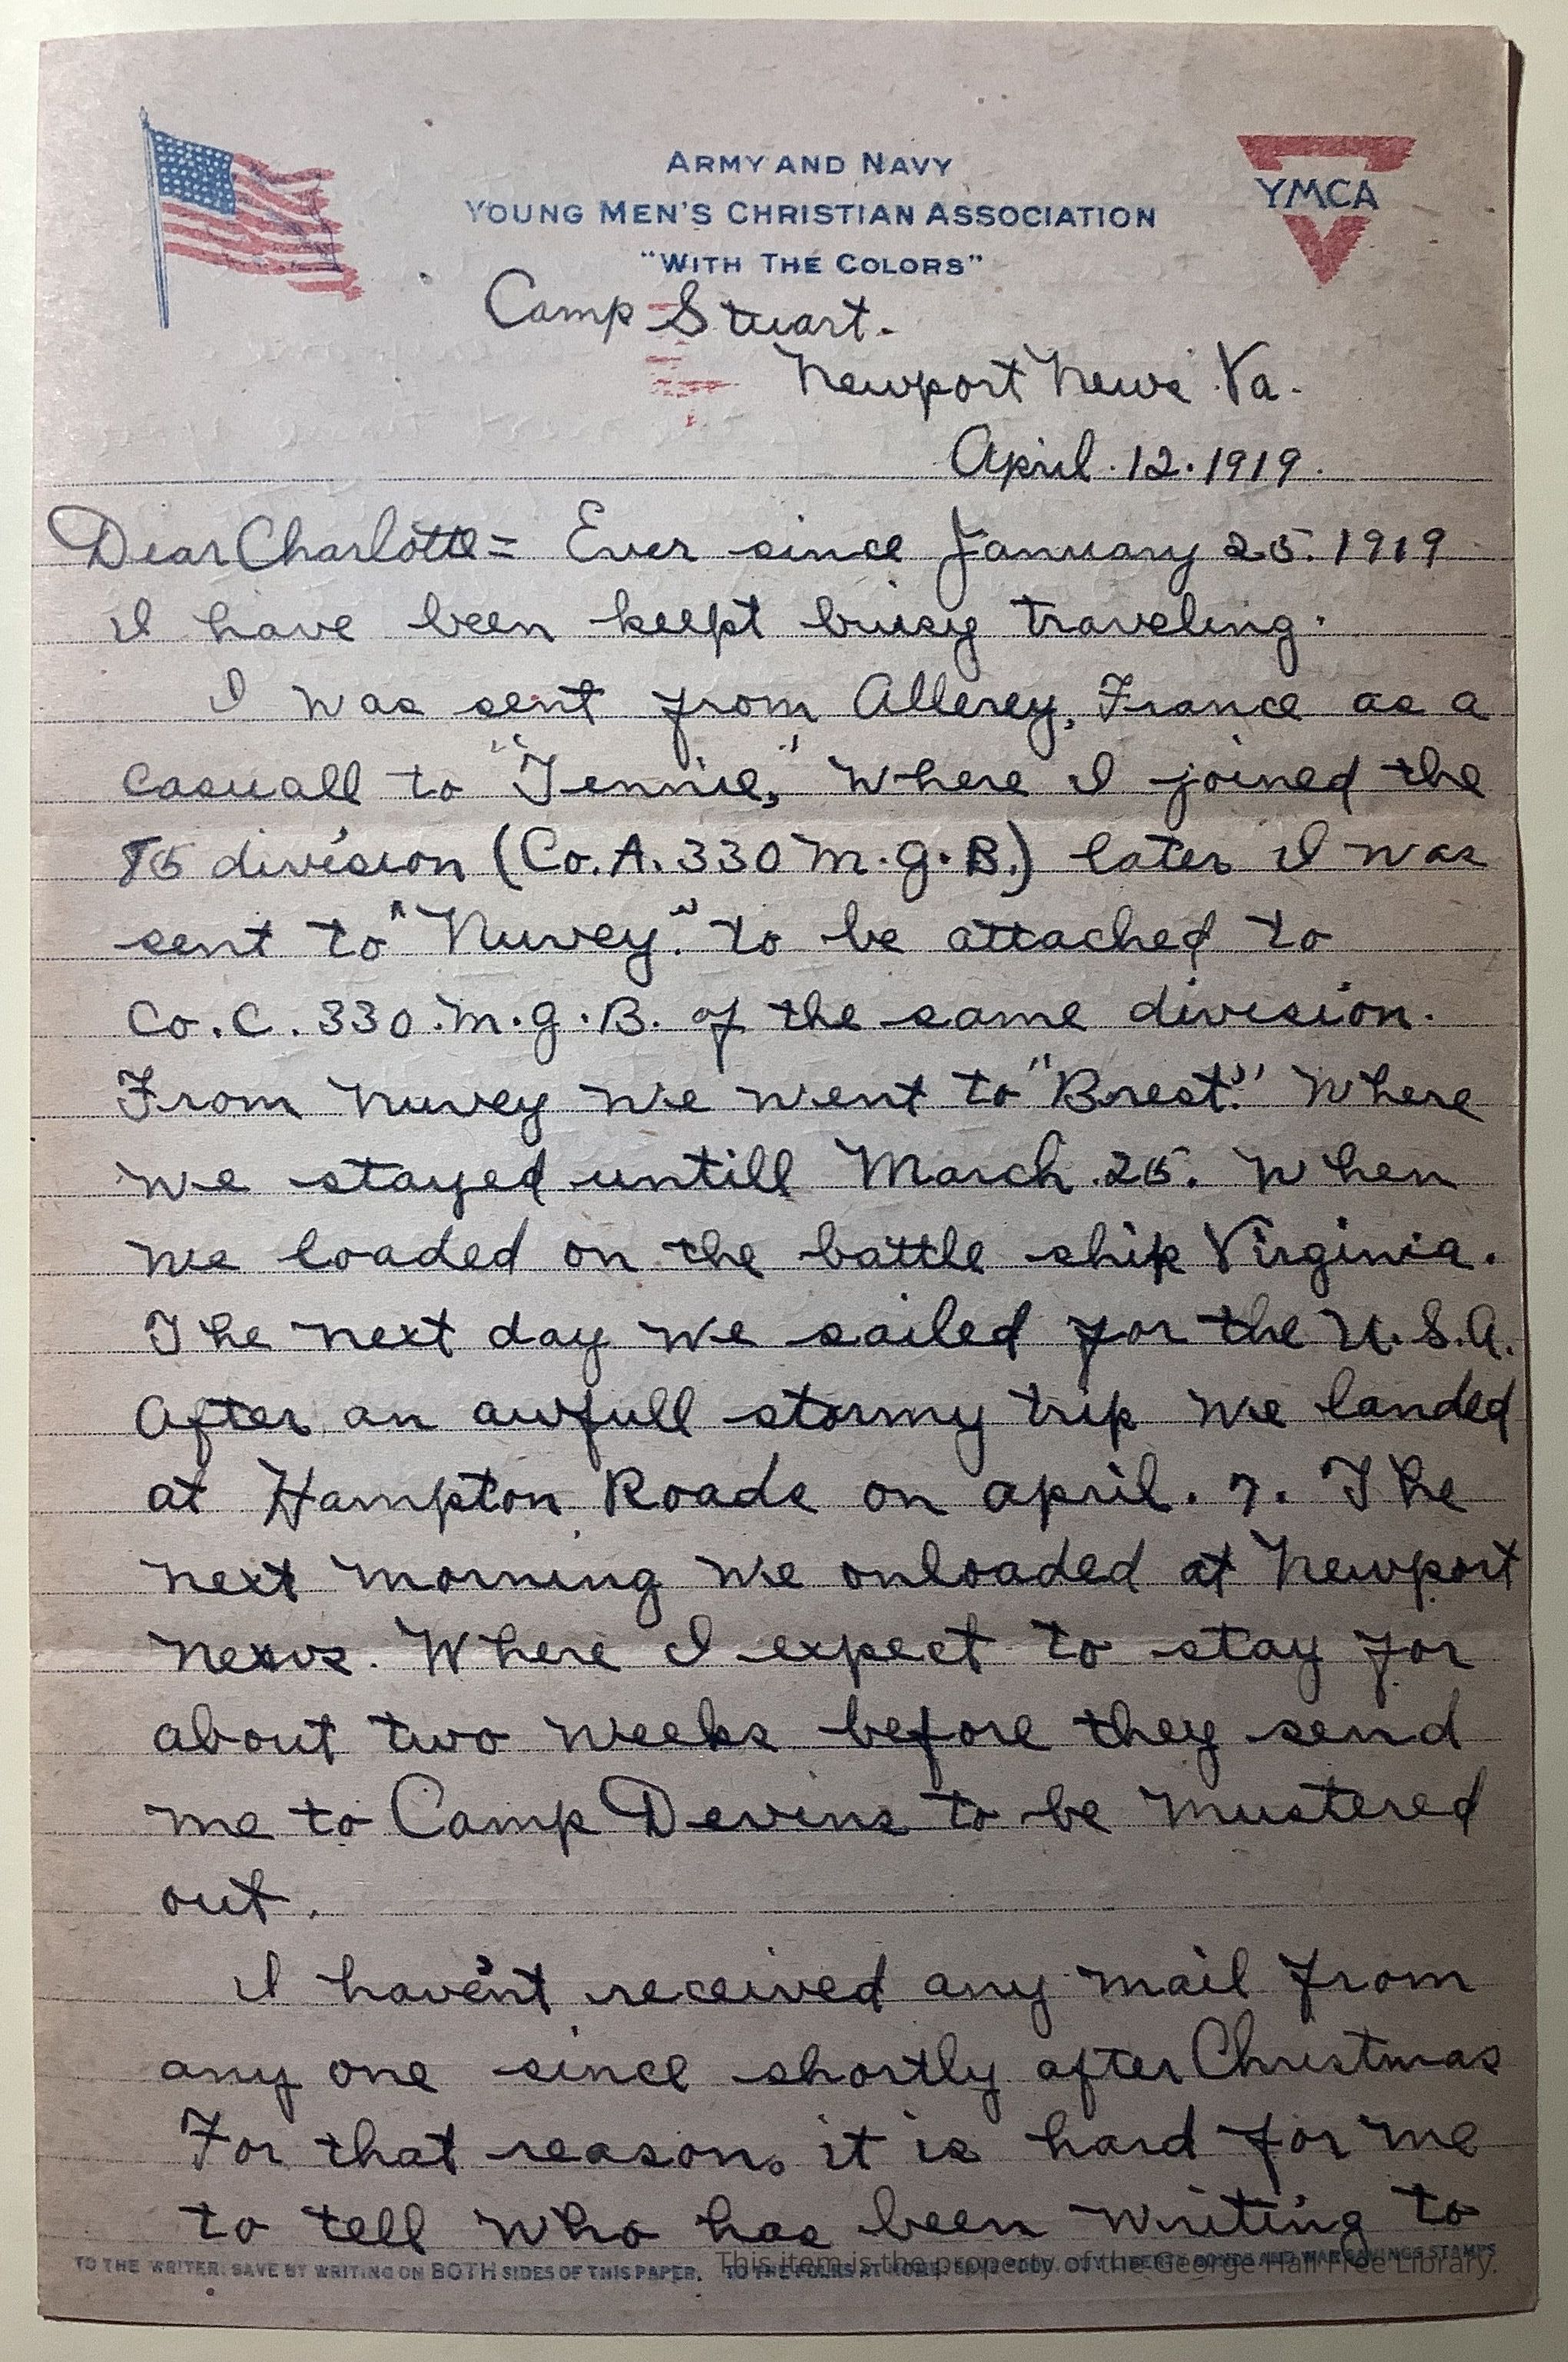 ARMY AND NAVY
YOUNG MEN'S CHRISTIAN ASSOCIATION
"WITH THE COLORS"
YMCA
Camp Stuart.
Newport News Va.
April. 12. 1919.
Dear Charlotte = Ever since January 25. 1919
I have been keept busy traveling.
I was sent from Allerey, France as a
casuall to "Jennie," Where I joined the
85 division (Co. A. 330 M.G.B.) later I was
sent to "Nuvey." to be attached to
Co. C. 330. M.G.B. of the same division.
From Nuvey we went to "Brest." Where
we stayed untill March. 25. When
we loaded on the battle ship Virginia.
The next day we sailed for the U.S.A.
After an awfull stormy trip we landed
at Hampton Roads on april. 7. The
next morning we onloaded at Newport
News. Where I expect to stay for
about two weeks before they send
me to Camp Devins to be mustered
out.
I haven't received any mail from
any one since shortly after Christmas
For that reason, it is hard for me
to tell who has been writing to
TO THE WRITER: SAVE BY WRITING ON BOTH SIDES OF THIS PAPER. TO THE FOLKS AT HOME: SAVE FOOD, BUY LIBERTY BONDS AND WAR SAVINGS STAMPS
This item is the property of the George Hail Free Library.